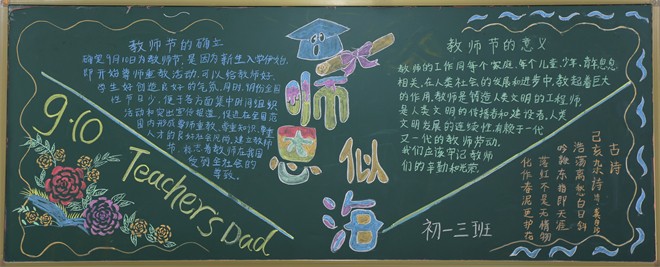 教师节的确立
确定9月10日为教师节,是因为新生入学伊始,
即开始尊师重教活动,可以给教师好、
学生好创造良好的气氛。同时,9月份全国
性节日少,便于各方面集中时间组织
活动和突出宣传报道,促进在全国范
围内形成尊师重教、尊重知识、尊重
人才的良好社会风尚。建立教师
节,标志着教师在我国
受到全社会的
尊敬。
9.10
Teachers Dad
师恩似海
教师节的意义
教师的工作同每个家庭、每个儿童、少年、青年息息
相关,在人类社会的发展和进步中,教起着巨大
的作用,教师是铸造人类文明的工程师,
是人类文明的传播者和建设者,人类
文明发展的连续性,有赖于一代
又一代的教师劳动。
我们应该牢记教师
们的辛勤和光荣。
初一三班
古诗
己亥杂诗
浩荡离愁白日斜
吟鞭东指即天涯
落红不是无情物
化作春泥更护花